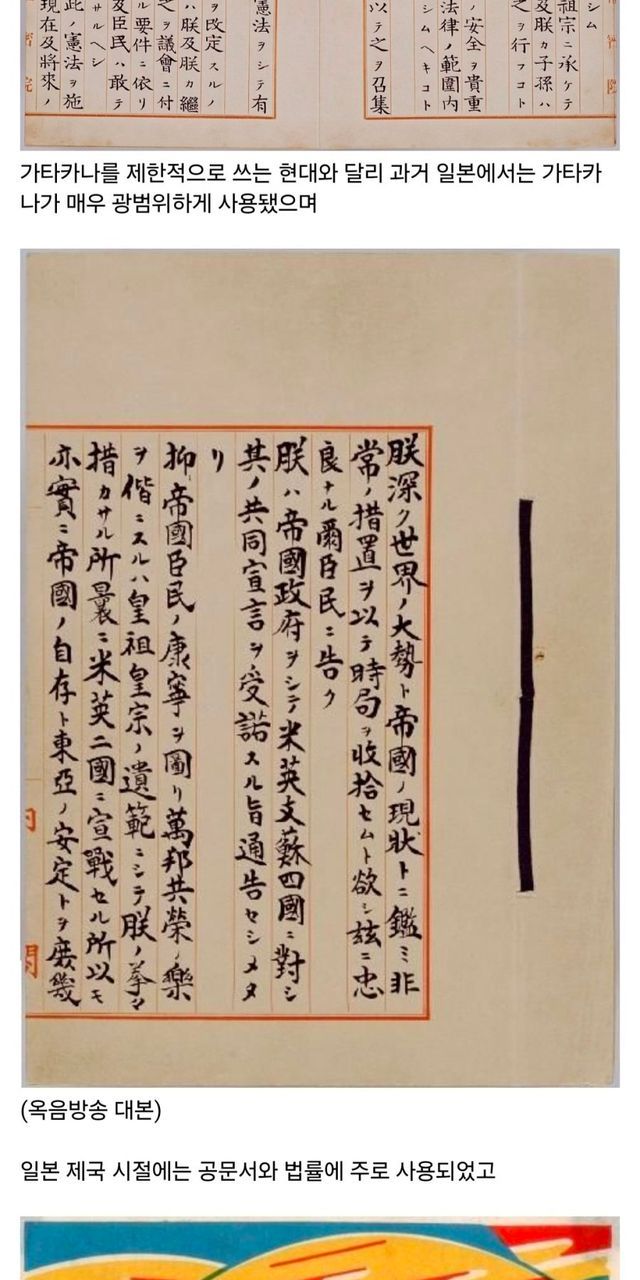 シム
祖宗ニ承ケテ
及朕カ子孫ハ
之ヲ行フコト
ノ安全ヲ貴重
法律ノ範圍内
シムヘキコト
以テ之ヲ召集
憲法ヲシテ有
ヲ改定スルノ
ハ朕及朕カ繼
之ヲ議會ニ付
ル要件ニ依リ
及臣民ハ敢テ
サルヘシ
此ノ憲法ヲ施
現在及將來ノ
가타카나를 제한적으로 쓰는 현대와 달리 과거 일본에서는 가타카
나가 매우 광범위하게 사용됐으며
朕深ク世界ノ大勢ト帝國ノ現狀トニ鑑ミ非
常ノ措置ヲ以テ時局ヲ收拾セムト欲シ玆ニ忠
良ナル爾臣民ニ告ク
朕ハ帝國政府ヲシテ米英支蘇四國ニ對シ
其ノ共同宣言ヲ受諾スル旨通告セシメタ
リ
抑帝國臣民ノ康寧ヲ圖リ萬邦共榮ノ樂
ヲ偕ニスルハ皇祖皇宗ノ遺範ニシテ朕ノ拳々
措カサル所曩ニ米英二國ニ宣戰セル所以モ
亦實ニ帝國ノ自存ト東亞ノ安定トヲ庶幾
(옥음방송 대본)
일본 제국 시절에는 공문서와 법률에 주로 사용되었고